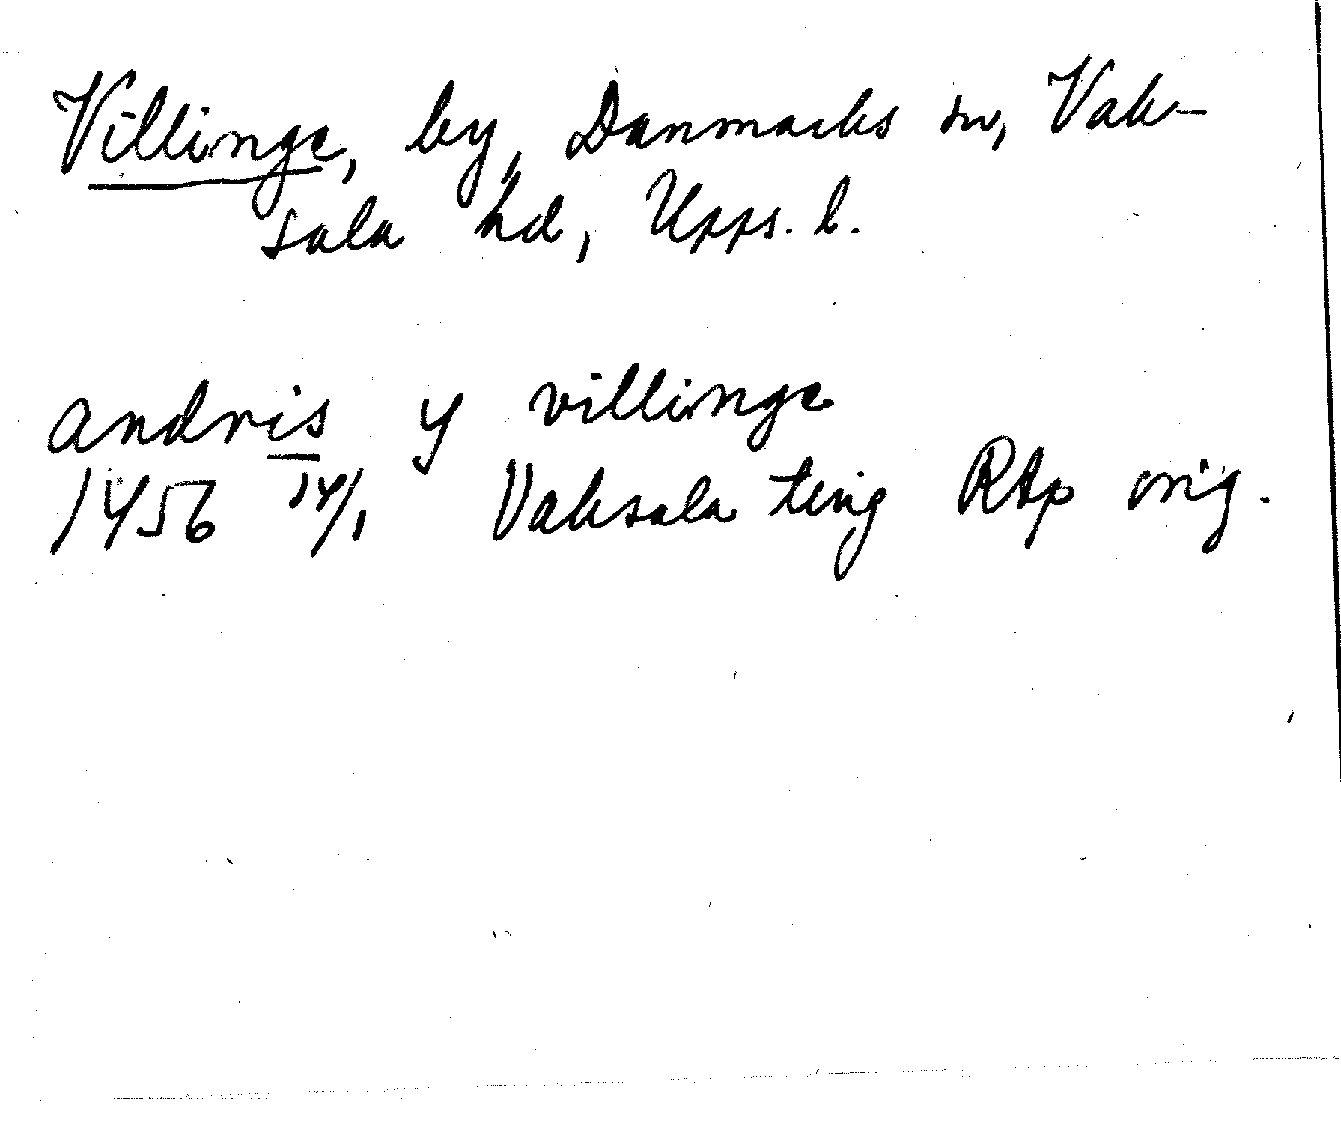 Villinge, by, Danmarks sn, Vak-
sala hd, Upps. l.
andris y villinge
1456 14/1 Vaksala ting RAp orig.